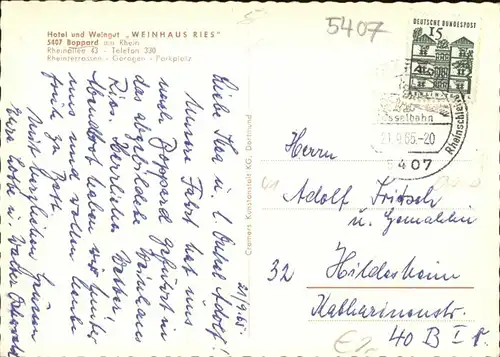 Hotel und Weingut „WEINHAUS RIES"
5407 Boppard am Rhein
Rheinallee 43 - Telefon 330
Rheinterrassen - Garagen - Parkplatz
5407
DEUTSCHE BUNDESPOST
15
sselbahn
21.9.65.-20
5407
21/9.65.
Liebe Ilse u. l. Onkel Adolf!
Unsere Fahrt hat uns
nach Boppard geführt in
das vorbildliche Weinhaus
Ries. Herrliches Wetter!
haben wir hinter
uns und wollen heute
früh zu Bett
Mit herzlichen Grüssen
Eure
Cramers Kunstanstalt KG, Dortmund
Herrn
Adolf Fritsch
u. Gemahlin
32 Hildesheim
Katharinenstr.
40 B I r.
E2